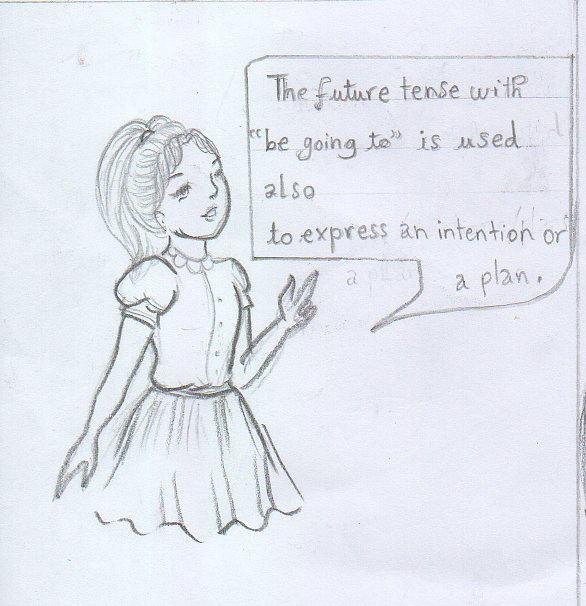 The future tense with
"be going to" is used
also
to express an intention or
a plan.